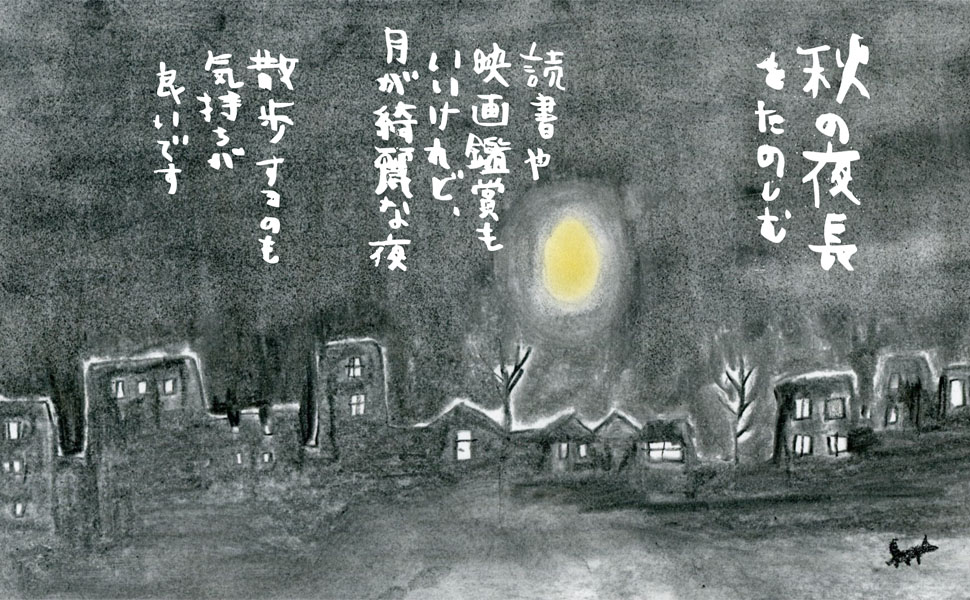 秋の夜長
をたのしむ
読書や
映画鑑賞も
いいけれど、
月が綺麗な夜
散歩するのも
気持ちが
良いです